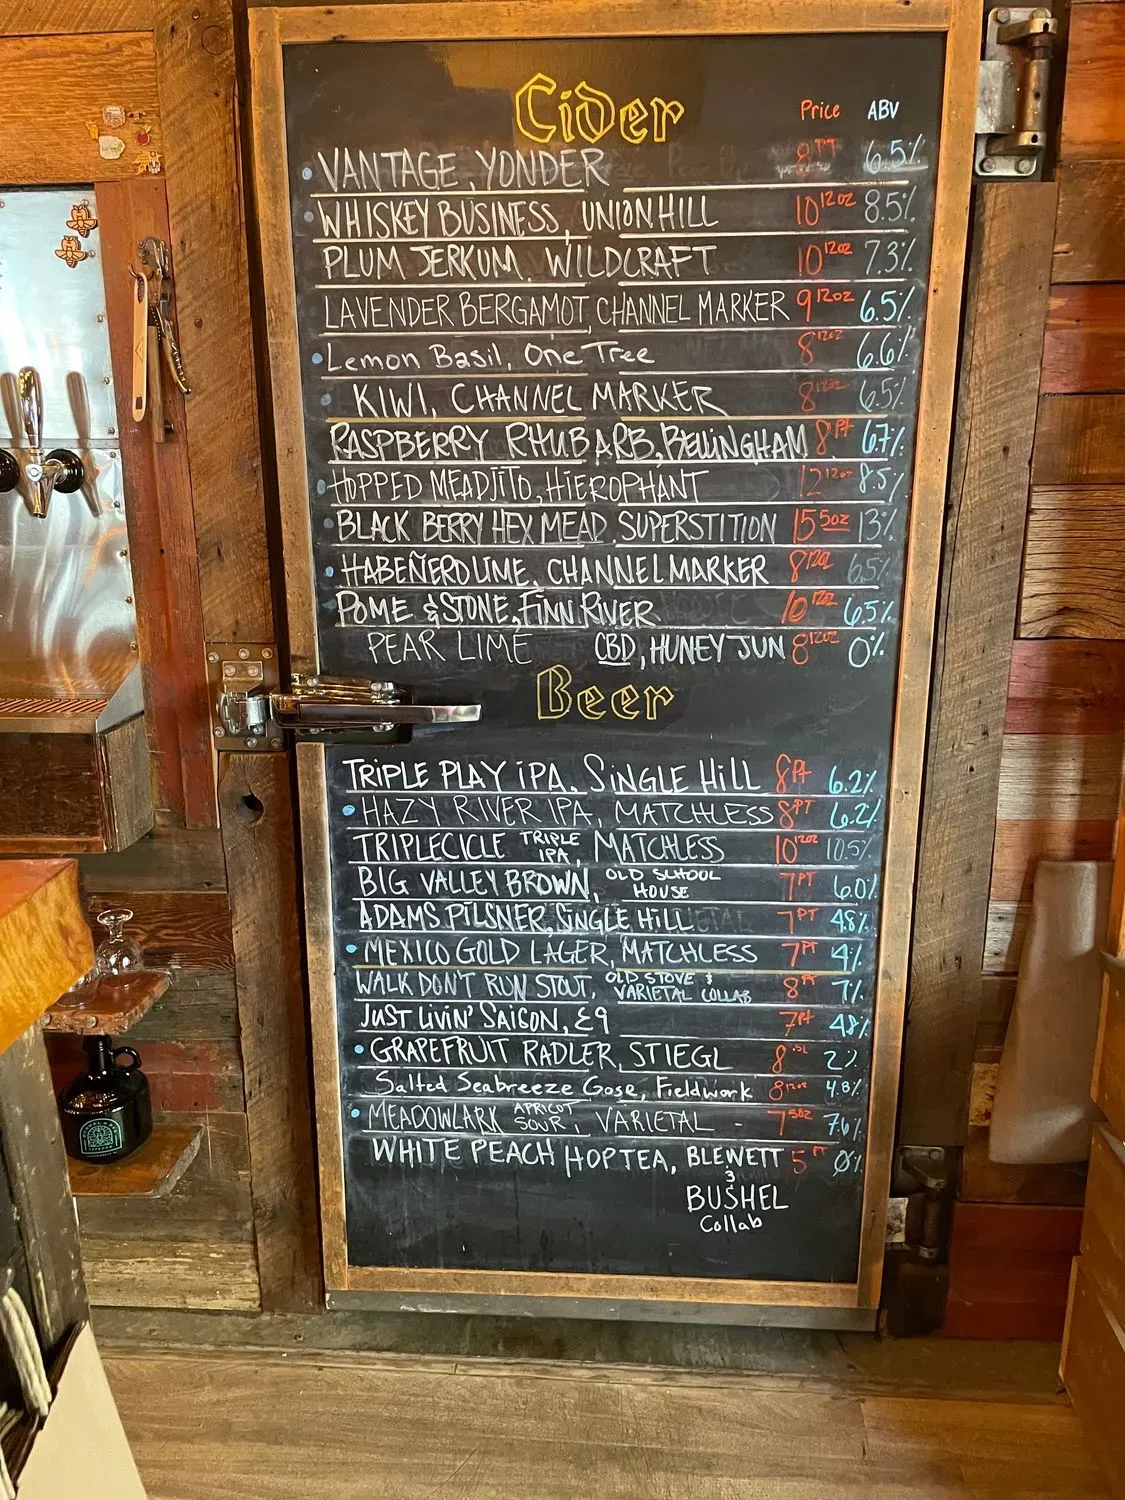 Cider Price ABV
VANTAGE, YONDER 8PT 6.5%
WHISKEY BUSINESS, UNION HILL 10 12oz 8.5%
PLUM JERKUM, WILDCRAFT 10 12oz 7.3%
LAVENDER BERGAMOT, CHANNEL MARKER 9 12oz 6.5%
Lemon Basil, One Tree 8 12oz 6.6%
KIWI, CHANNEL MARKER 8 12oz 6.5%
RASPBERRY RHUBARB, BELLINGHAM 8 Pt 6.7%
HOPPED MEADJITO, HIEROPHANT 12 12oz 8.5%
BLACK BERRY HEX MEAD, SUPERSTITION 15 5oz 13%
HABEÑERO LIME, CHANNEL MARKER 8 12oz 6.5%
POME & STONE, FINN RIVER 10 12oz 6.5%
PEAR LIME CBD, HUNEY JUN 8 12oz 0%
Beer
TRIPLE PLAY IPA, SINGLE HILL 8 Pt 6.2%
HAZY RIVER IPA, MATCHLESS 8 PT 6.2%
TRIPLECICLE TRIPLE IPA, MATCHLESS 10 12oz 10.5%
BIG VALLEY BROWN, OLD SCHOOL HOUSE 7 PT 6.0%
ADAMS PILSNER, SINGLE HILL 7 PT 4.8%
MEXICO GOLD LAGER, MATCHLESS 7 PT 4%
WALK DON'T RUN STOUT, OLD STOVE & VARIETAL COLLAB 8 PT 7%
JUST LIVIN' SAISON, E9 7 Pt 4.8%
GRAPEFRUIT RADLER, STIEGL 8 .5L 2%
Salted Seabreeze Gose, Fieldwork 8 12oz 4.8%
MEADOWLARK APRICOT SOUR, VARIETAL - 7 5oz 7.6%
WHITE PEACH HOPTEA, BLEWETT 5 PT 0%
&
BUSHEL
Collab